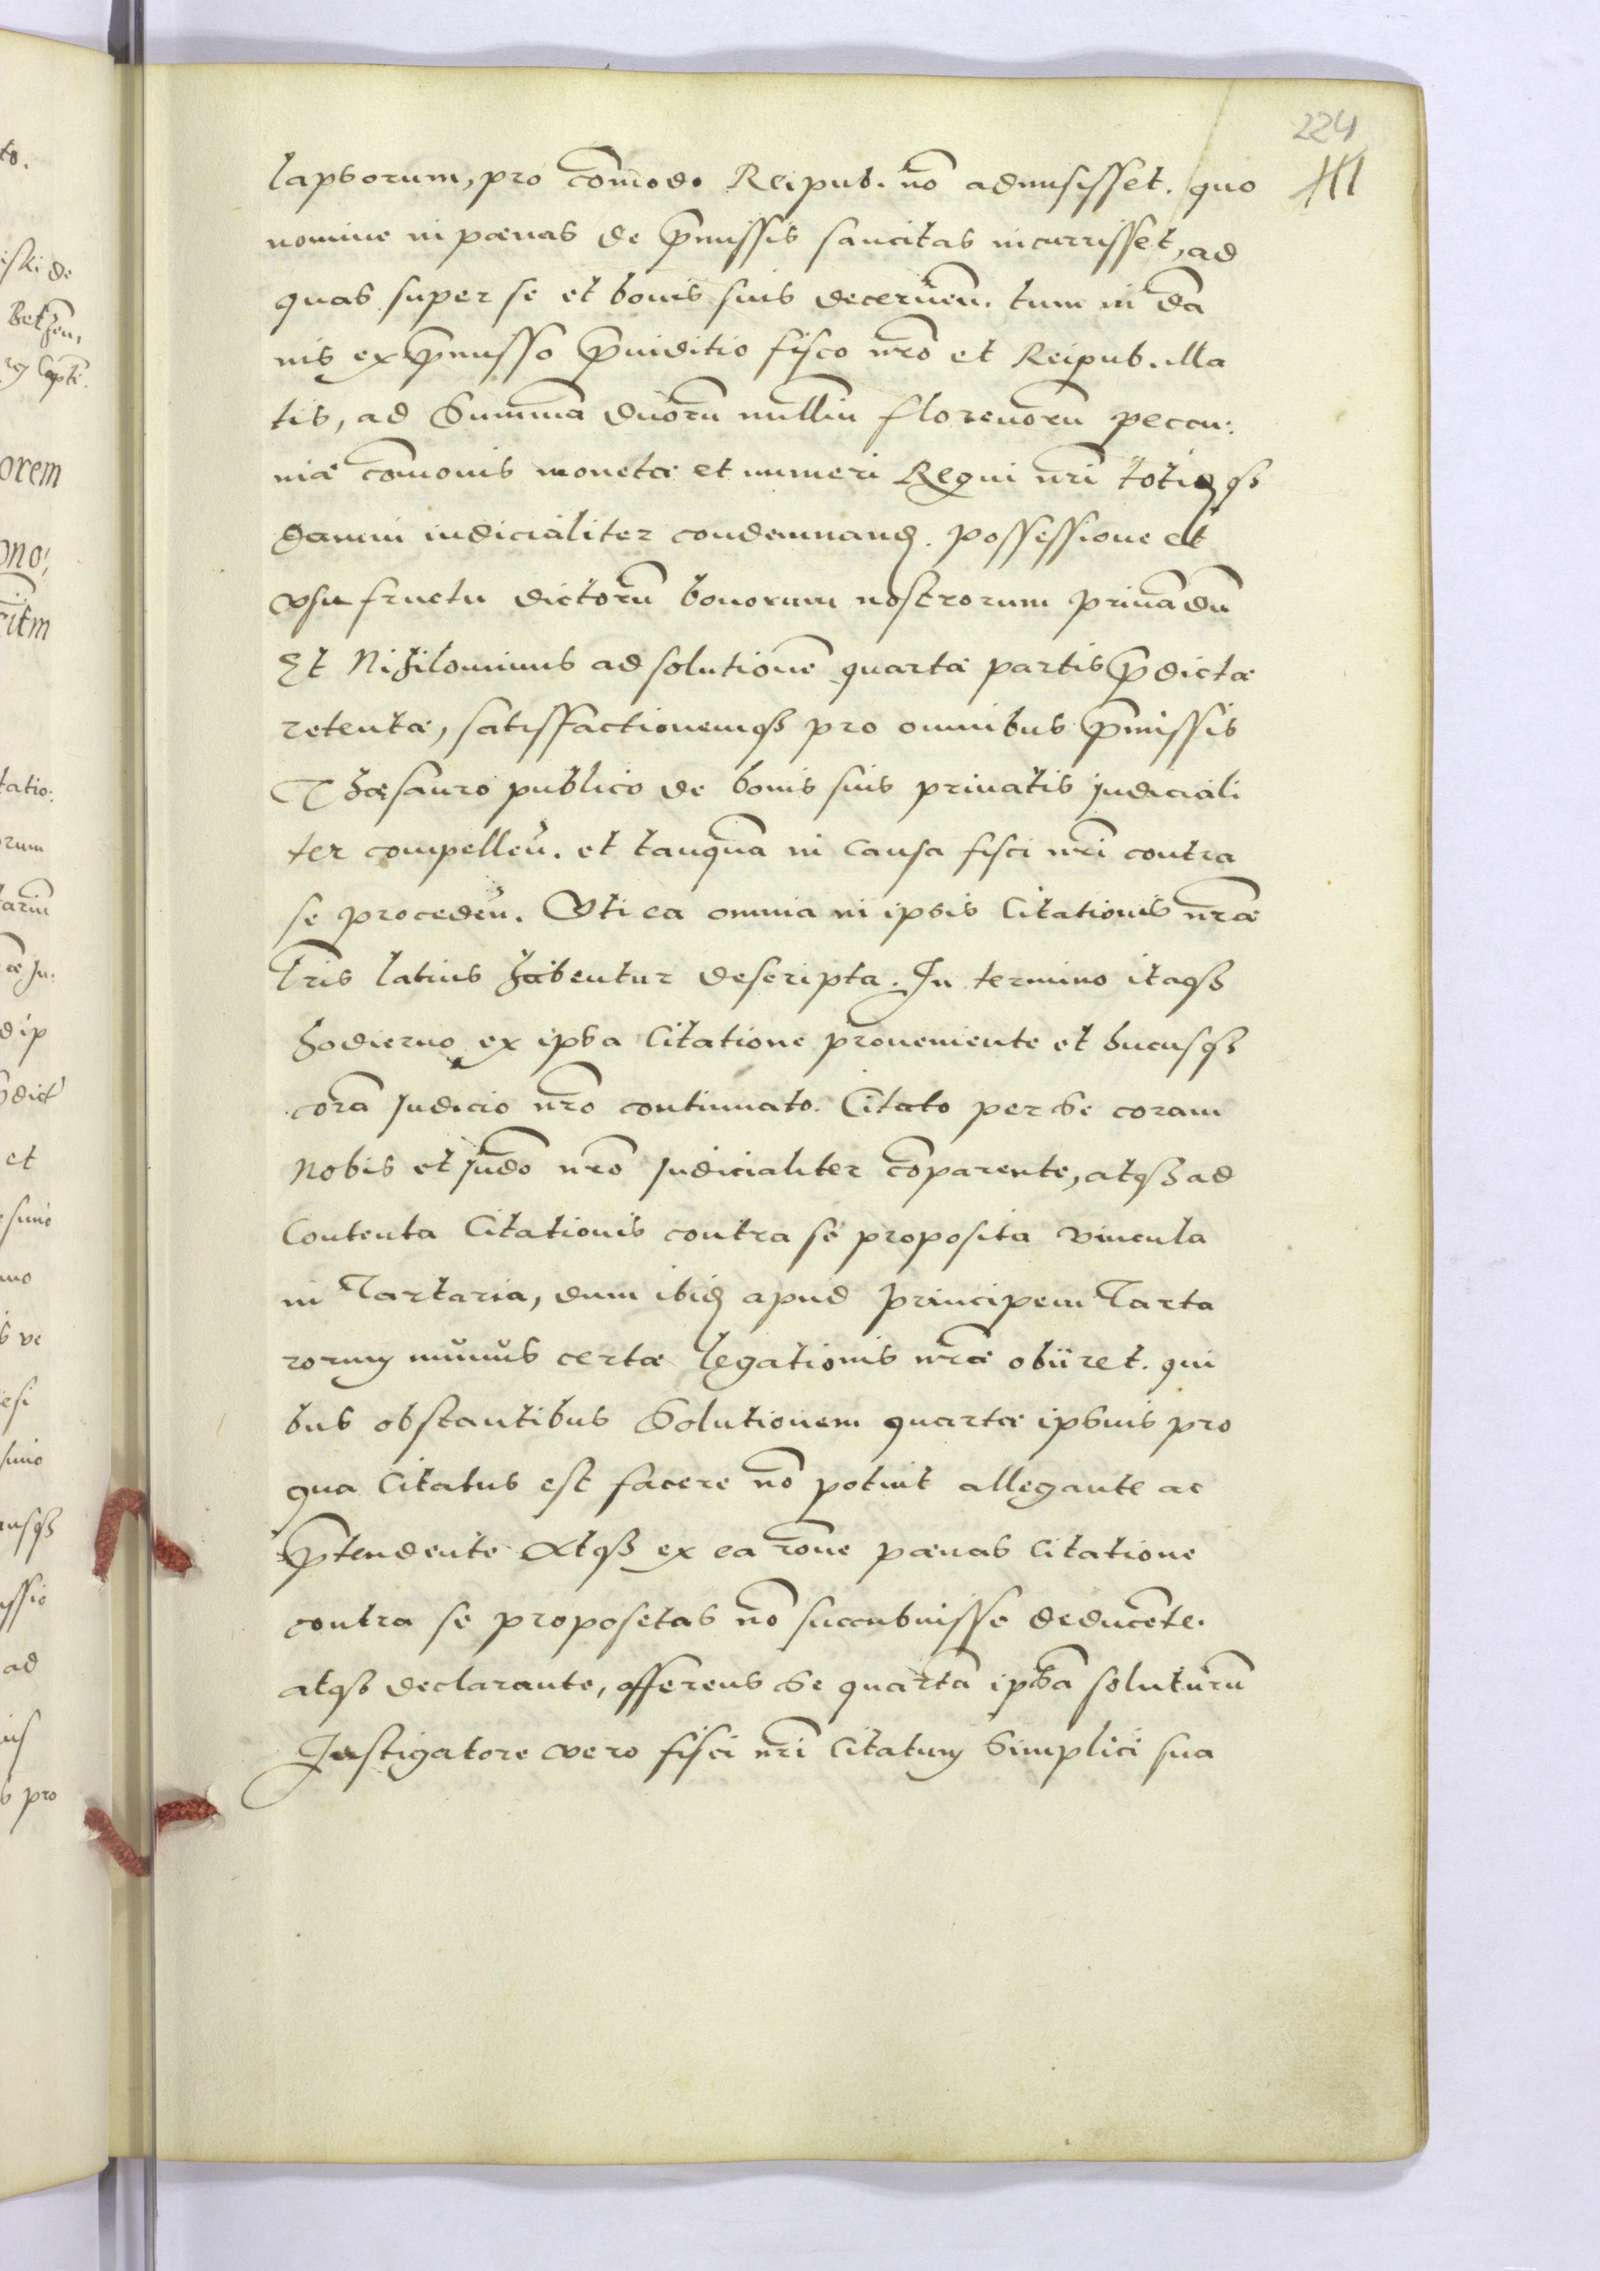 224
lapsorum, pro com̃odo Reipub. nõ admisisset. quo
nomine in pœnas de p̃missis sancitas incurrisset, ad
quas super se et bonis suis decerneñ. tum in dã
nis ex p̃misso p̃iuditio fisco nr̃o et Reipub. illa
tis, ad Summã duorũ milliũ florenorũ peccu:
niæ com̃onis monetæ et numeri Regni nr̃i totiq̃
damni iudicialiter condemnand. possessione et
vsufructu dictorũ bonorum nostrorum priuãdũ
Et Nihilominus ad solutionẽ quartæ partis p̃dictæ
retentæ, satisfactionemq3 pro omnibus p̃missis
Thæsauro publico de bonis suis priuatis judiciali
ter compelleñ. et tanquã in causa fisci nr̃i contra
se procedeñ. Vti ea omnia in ipsis Citationis nr̃æ
Lr̃is latius habentur descripta. In termino itaq3
hodierno ex ipsa Citatione proueniente et hucusq3
corã Judicio nr̃o continuato. Citato per se coram
Nobis et Judõ nr̃o Judicialiter cõparente, atq3 ad
Contenta Citationis contra se proposita vincula
in Tartaria, dum ibid apud Principem Tarta
rorum munus certæ legationis nr̃æ obiiret. qui
bus obstantibus Solutionem quartæ ipsius pro
qua Citatus est facere nõ potuit allegante ac
p̃tendente Atq3 ex ea rõne pœnas Citatione
contra se propositas nõ succubuisse deducẽte.
atq3 declarante, offerens se quartã ipsã soluturũ
Instigatore vero fisci nr̃i Citatum Simplici sua